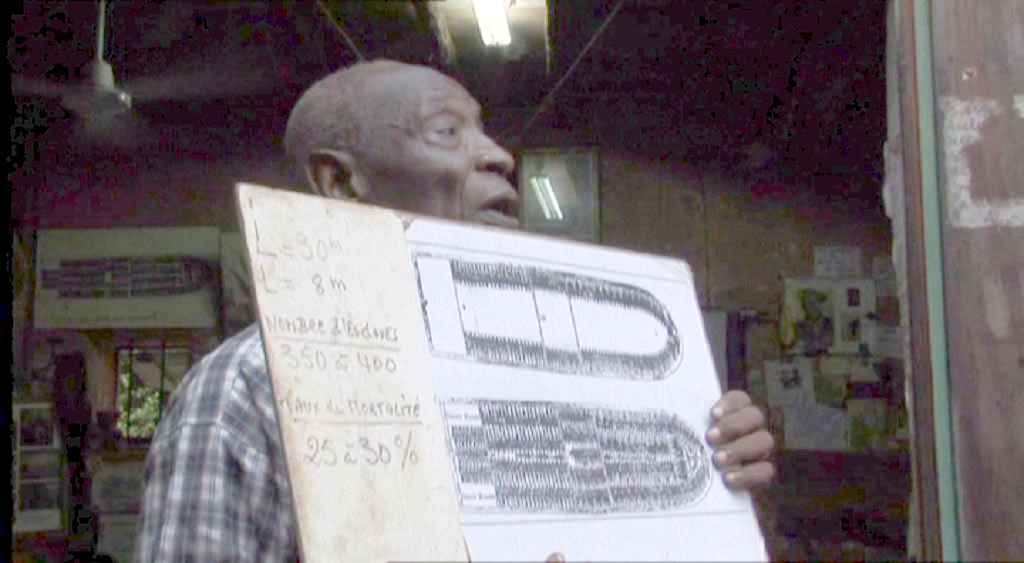 L = 30 m
L = 8 m
NOMBRE d'ESCLAVES
350 à 400
TAUX de MORTALITÉ
25 à 30 %